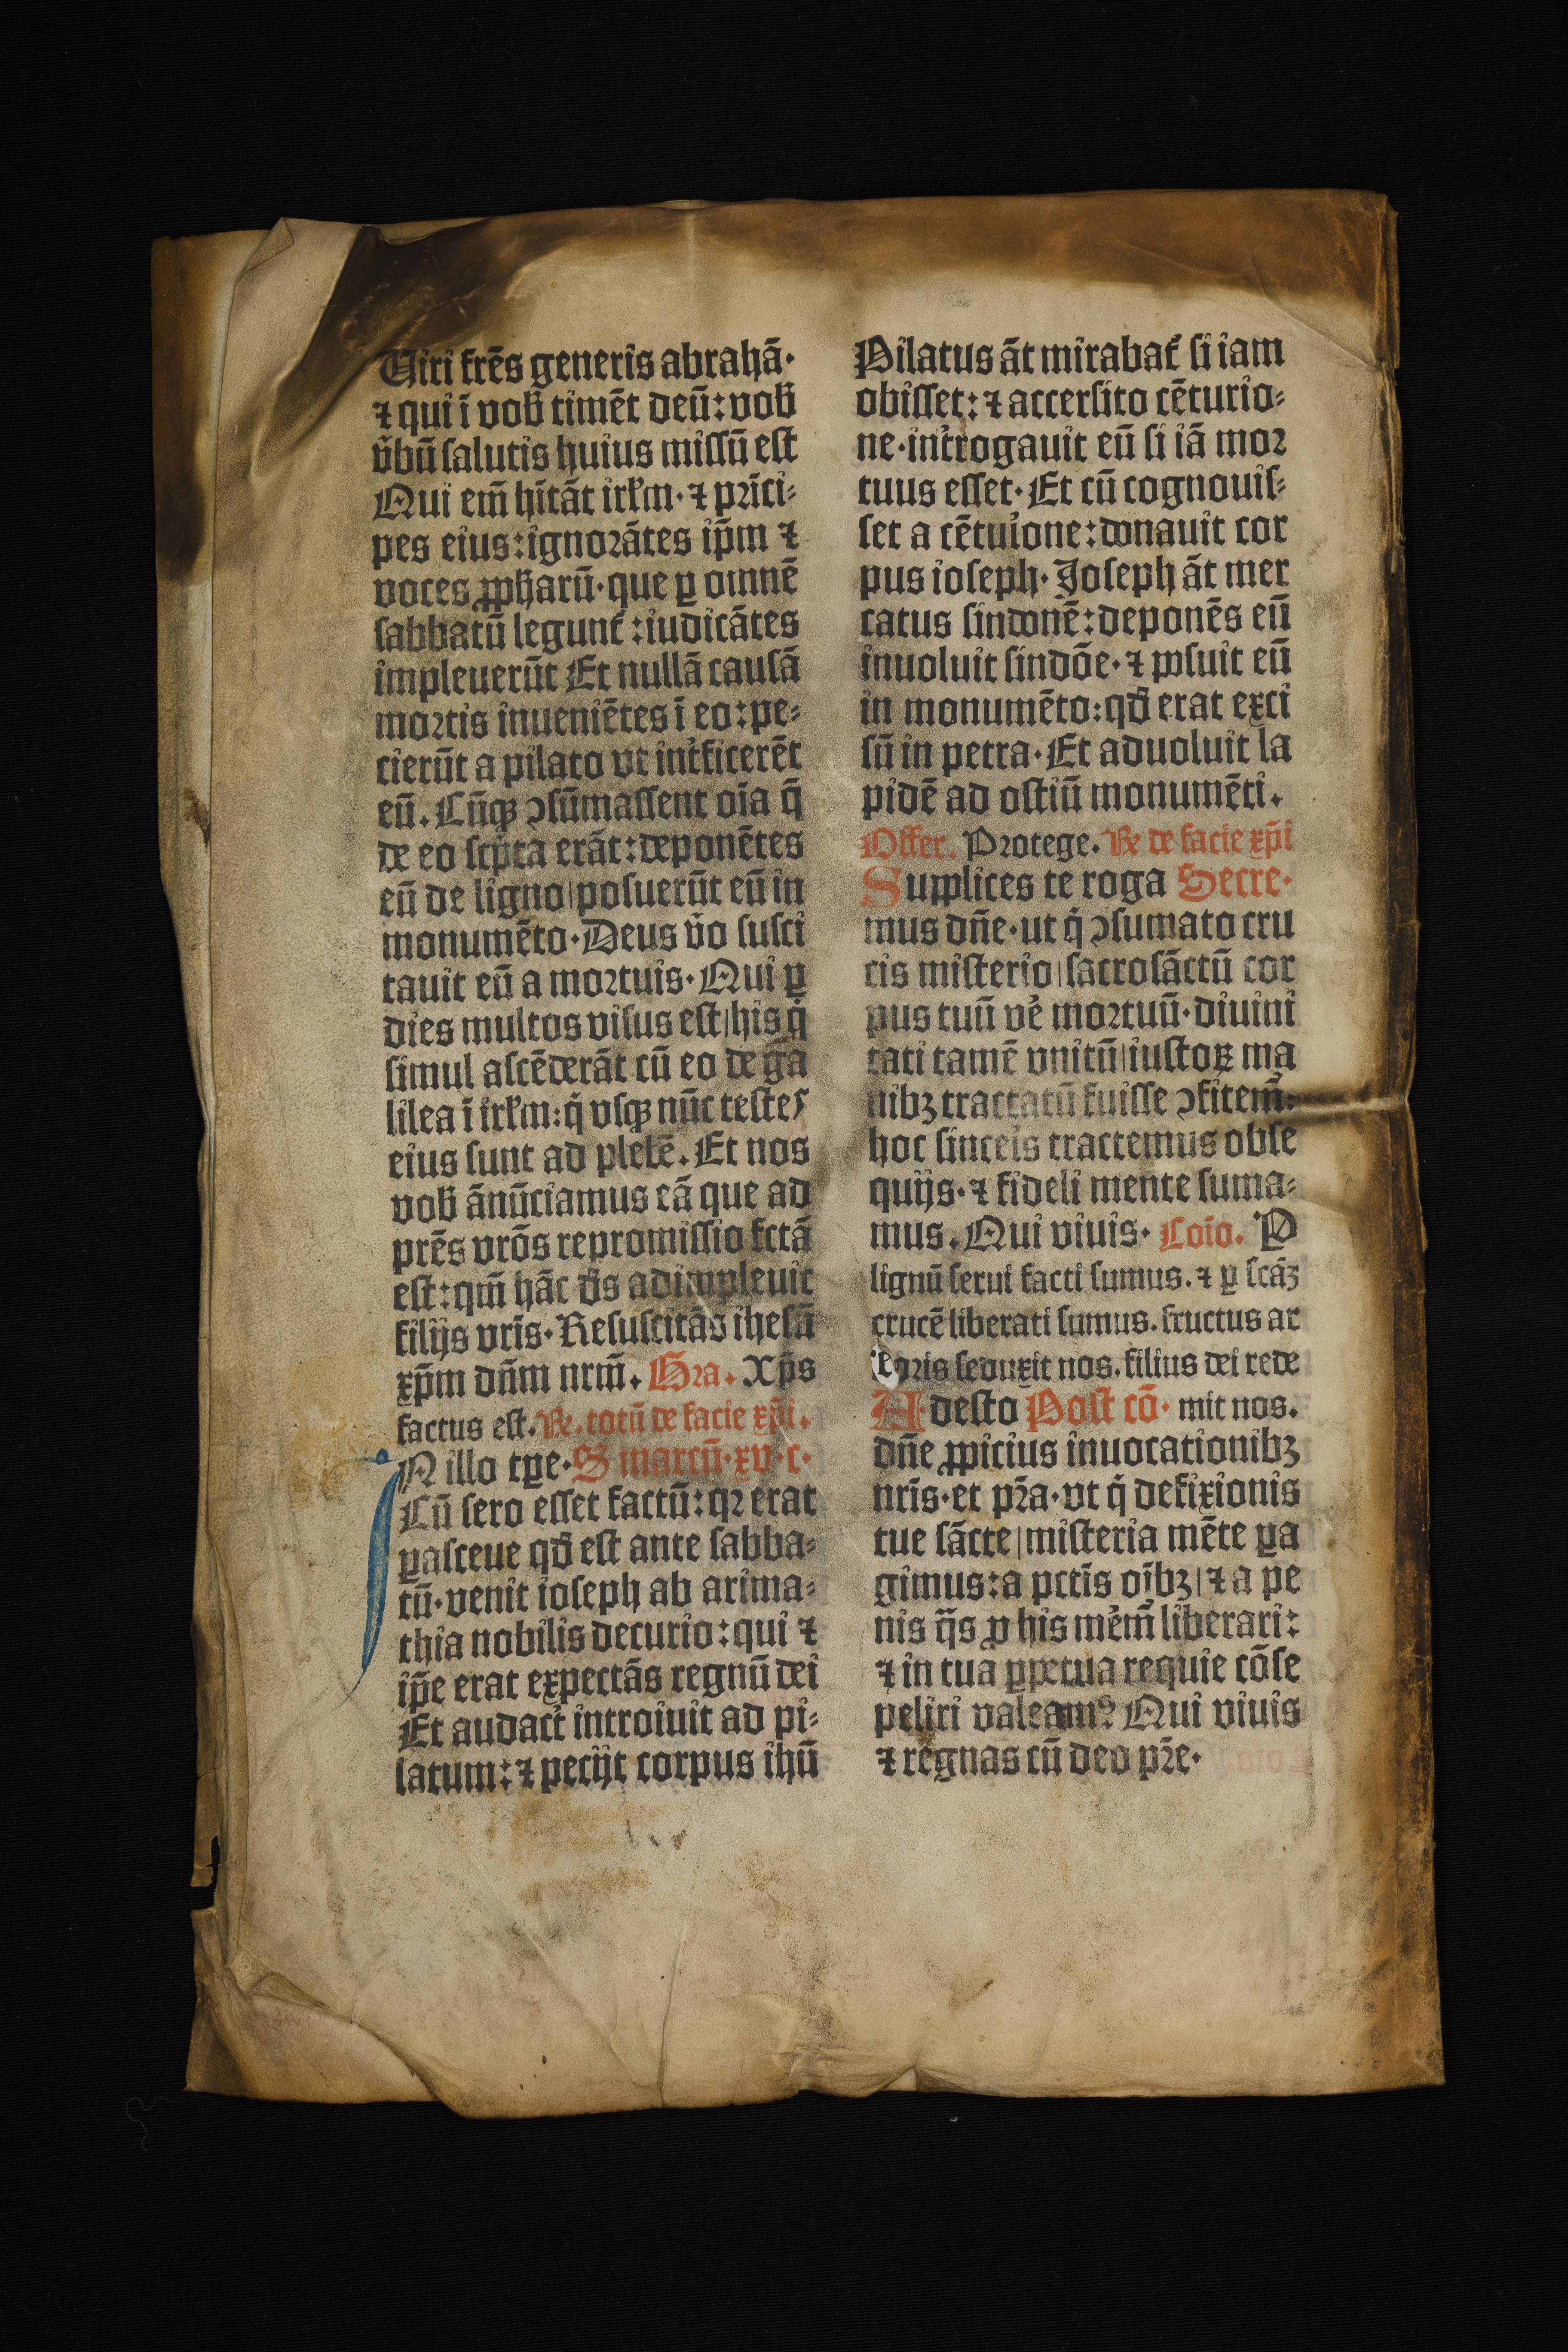 Uiri frēs generis abrahā·
⁊ qui ī vob̄ timēt deū: vob̄
v̄bū salutis huius missū est
Qui em̄ hītāt irlm̄· ⁊ prīci⸗
pes eius: ignorātes ip̄m ⁊
voces ꝓph̄arū· que ꝑ omnē
sabbatū legunt᷑: iudicātes
impleuerūt Et nullā causā
mortis inueniētes ī eo: pe⸗
cierūt a pilato vt int᷑ficerēt
eū. Cūqꝫ ↄsūmassent oīa q̄
de eo scp̄ta erāt: deponētes
eū de ligno| posuerūt eū in
monumēto· Deus v̄o susci
tauit eū a mortuis· Qui ꝑ
dies multos visus est| his q̇
simul ascēderāt cū eo de ga
lilea ī irlm̄: q̇ vsqꝫ nūc testes
eius sunt ad plebē. Et nos
vob̄ ānūciamus eā que ad
prēs vrōs repromissio fctā
est: qm̄ hāc d̄s adimpleuit
filijs vrīs· Resuscitās ihesū
xp̄m dn̄m nrm̄. Gra. Xp̄s
factus est. Re. totū de facie xp̄i.
IN illo tꝑe· S marcū· xv· c·
Cū sero esset factū: qꝛ erat
ꝑasceue qd̄ est ante sabba⸗
tū· venit ioseph ab arima⸗
thia nobilis decurio: qui ⁊
ip̄e erat expectās regnū dei
Et audact᷑ introiuit ad pi⸗
latum: ⁊ pecijt corpus ihū
Pilatus āt mirabat᷑ si iam
obisset: ⁊ accersito cēturio⸗
ne· int᷑rogauit eū si iā mor
tuus esset· Et cū cognouis⸗
set a cētuione: donauit cor
pus ioseph· Joseph āt mer
catus sindonē: deponēs eū
inuoluit sindōe· ⁊ posuit eū
in monumēto: qd̄ erat exci
sū in petra· Et aduoluit la
pidē ad ostiū monumēti.
Offer. Protege. Re de facie xp̄i
Supplices te roga Secre·
mus dn̄e· ut q̇ ↄsumato cru
cis misterio| sacrosāctū cor
pus tuū ve᷑ mortuū· diuini
tati tamē vnitū| iustoꝝ ma
nibꝫ tractatū fuisse ↄfitem̄:
hoc sinceis tractemus obse
quijs· ⁊ fideli mente suma⸗
mus. Qui viuis· Coīo. P
lignū serui facti sumus. ⁊ ꝑ scāꝫ
crucē liberati sumus. fructus ar
boris seduxit nos. filius dei rede
Adesto Post cō· mit nos.
dn̄e ꝓpicius inuocationibꝫ
nrīs· et pꝛ̄a· vt q̇ defixionis
tue sācte| misteria mēte ꝑa
gimus: a pctīs oībꝫ| ⁊ a pe
nis q̄s ꝓ his me᷑m̄ liberari:
⁊ in tua ꝑpetua requie cōse
peliri valeamꝰ Qui viuis
⁊ regnas cū deo pr̄e·